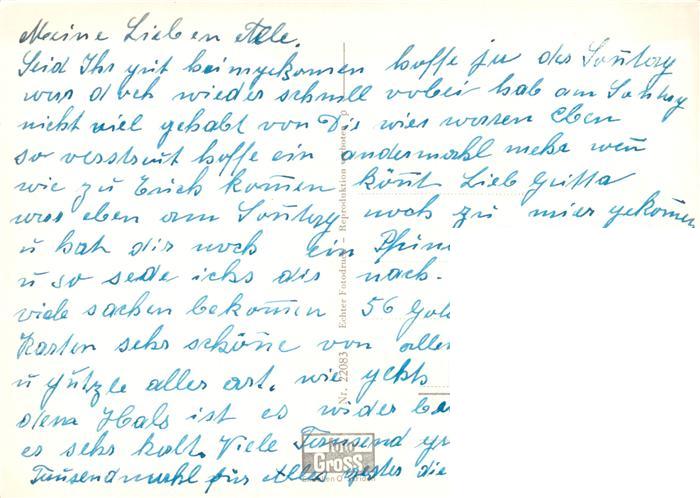 Meine Lieben Alle.
Seid Ihr gut heimgekomen hoffe ja der Soñtag
war doch wieder schnell vobei hab am Soñtag
nicht viel gehabt von Die wier waren Eben
so verstreut hoffe ein andermahl mehr weñ
wie zu Euch komen köñt Lieb Gritta
war eben am Soñtag noch zu mier gekomen
u hat dir noch ein
u so sede ichs dir nach.
viele sachen bekomen 56
Karten sehr schöne von alle
u alles art. wie gehts
dem Hals ist es wider be
es sehr kalt. Viele Tausend gr
Tausendmahl für Alles die
Nr. 22083 Echter Fotodruck – Reproduktion verboten
foto GROSS